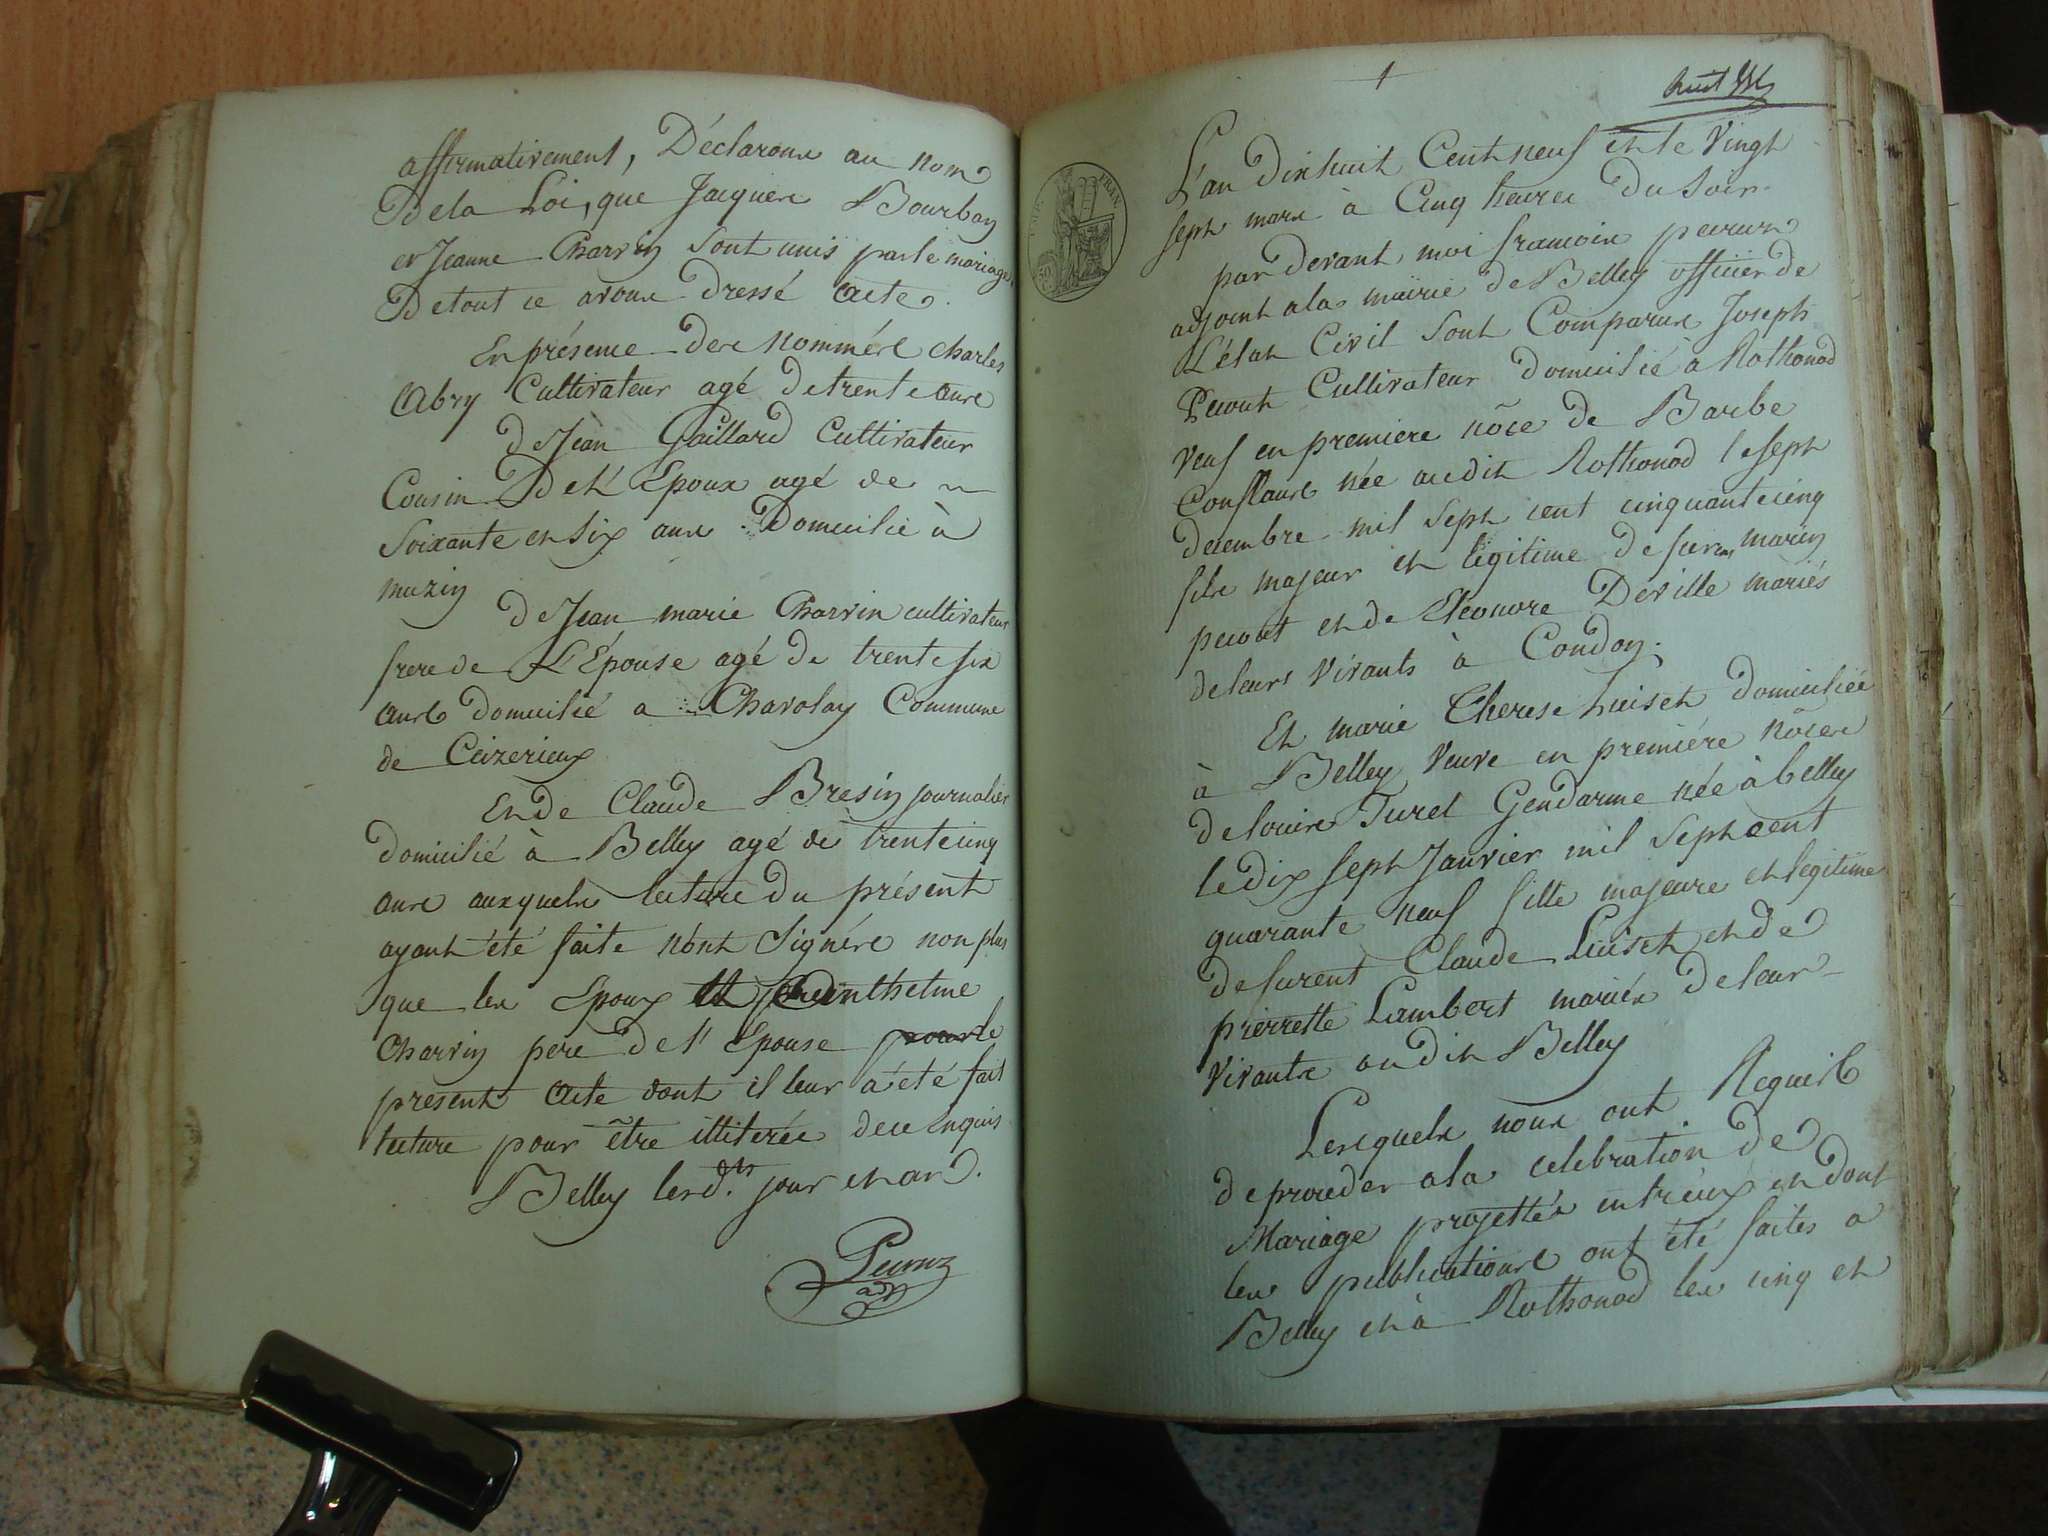 affirmativement, Déclarons au nom
De la Loi, que Jacques Bourbon
et Jeanne Charvin sont unis par le mariage,
De tout ce avons dressé acte.
En présence des nommés Charles
Abry Cultivateur agé de trente ans
de Jean Gaillard Cultivateur
Cousin De l'Epoux agé de
soixante et six ans Domicilié à
muzin
de Jean marie Charvin cultivateur
frere de L'Épouse agé de trente six
ans domicilié a Chavolay Commune
de Ceizerieux
Et de Claude Bresin journalier
domicilié à Belley agé de trente cinq
ans auxquels lecture du présent
ayant été faite n'ont signés non plus
que les Epoux et Anthelme
Charvin pere de l'Epouse pour le
présent acte dont il leur a été fait
lecture pour être illiterés de ce enquis
Belley les d.ts jour et an.
adj
1
huit
L'an dix huit Cent neuf et le Vingt
sept mars à Cinq heures du soir
par devant moi francois
adjoint a la mairie de Belley officier de
L'état Civil sont Comparus Joseph
Pecout Cultivateur domicilié à Rothonod
veuf en premiere nõce de Barbe
Constans née audit Rothonod le sept
decembre mil sept cent cinquante cinq
fils majeur et légitime de feu marin
pecout et de Eleonore Deville mariés
de leurs vivants à Condon.
Et marie Therese Luiset domiciliée
à Belley veuve en premiére nõces
de louis Turel Gendarme née à belley
le dix sept Janvier mil sept cent
quarante neuf fille majeure et légitime
de furent Claude Luiset et de
pierrette Lambert mariés de leur
vivants au dit Belley
Lesquels nous ont Requis
de proceder a la celebration de
Mariage projettés entr'eux et dont
les publications ont été faites a
Belley et à Rothonod les cinq et
FRAN.